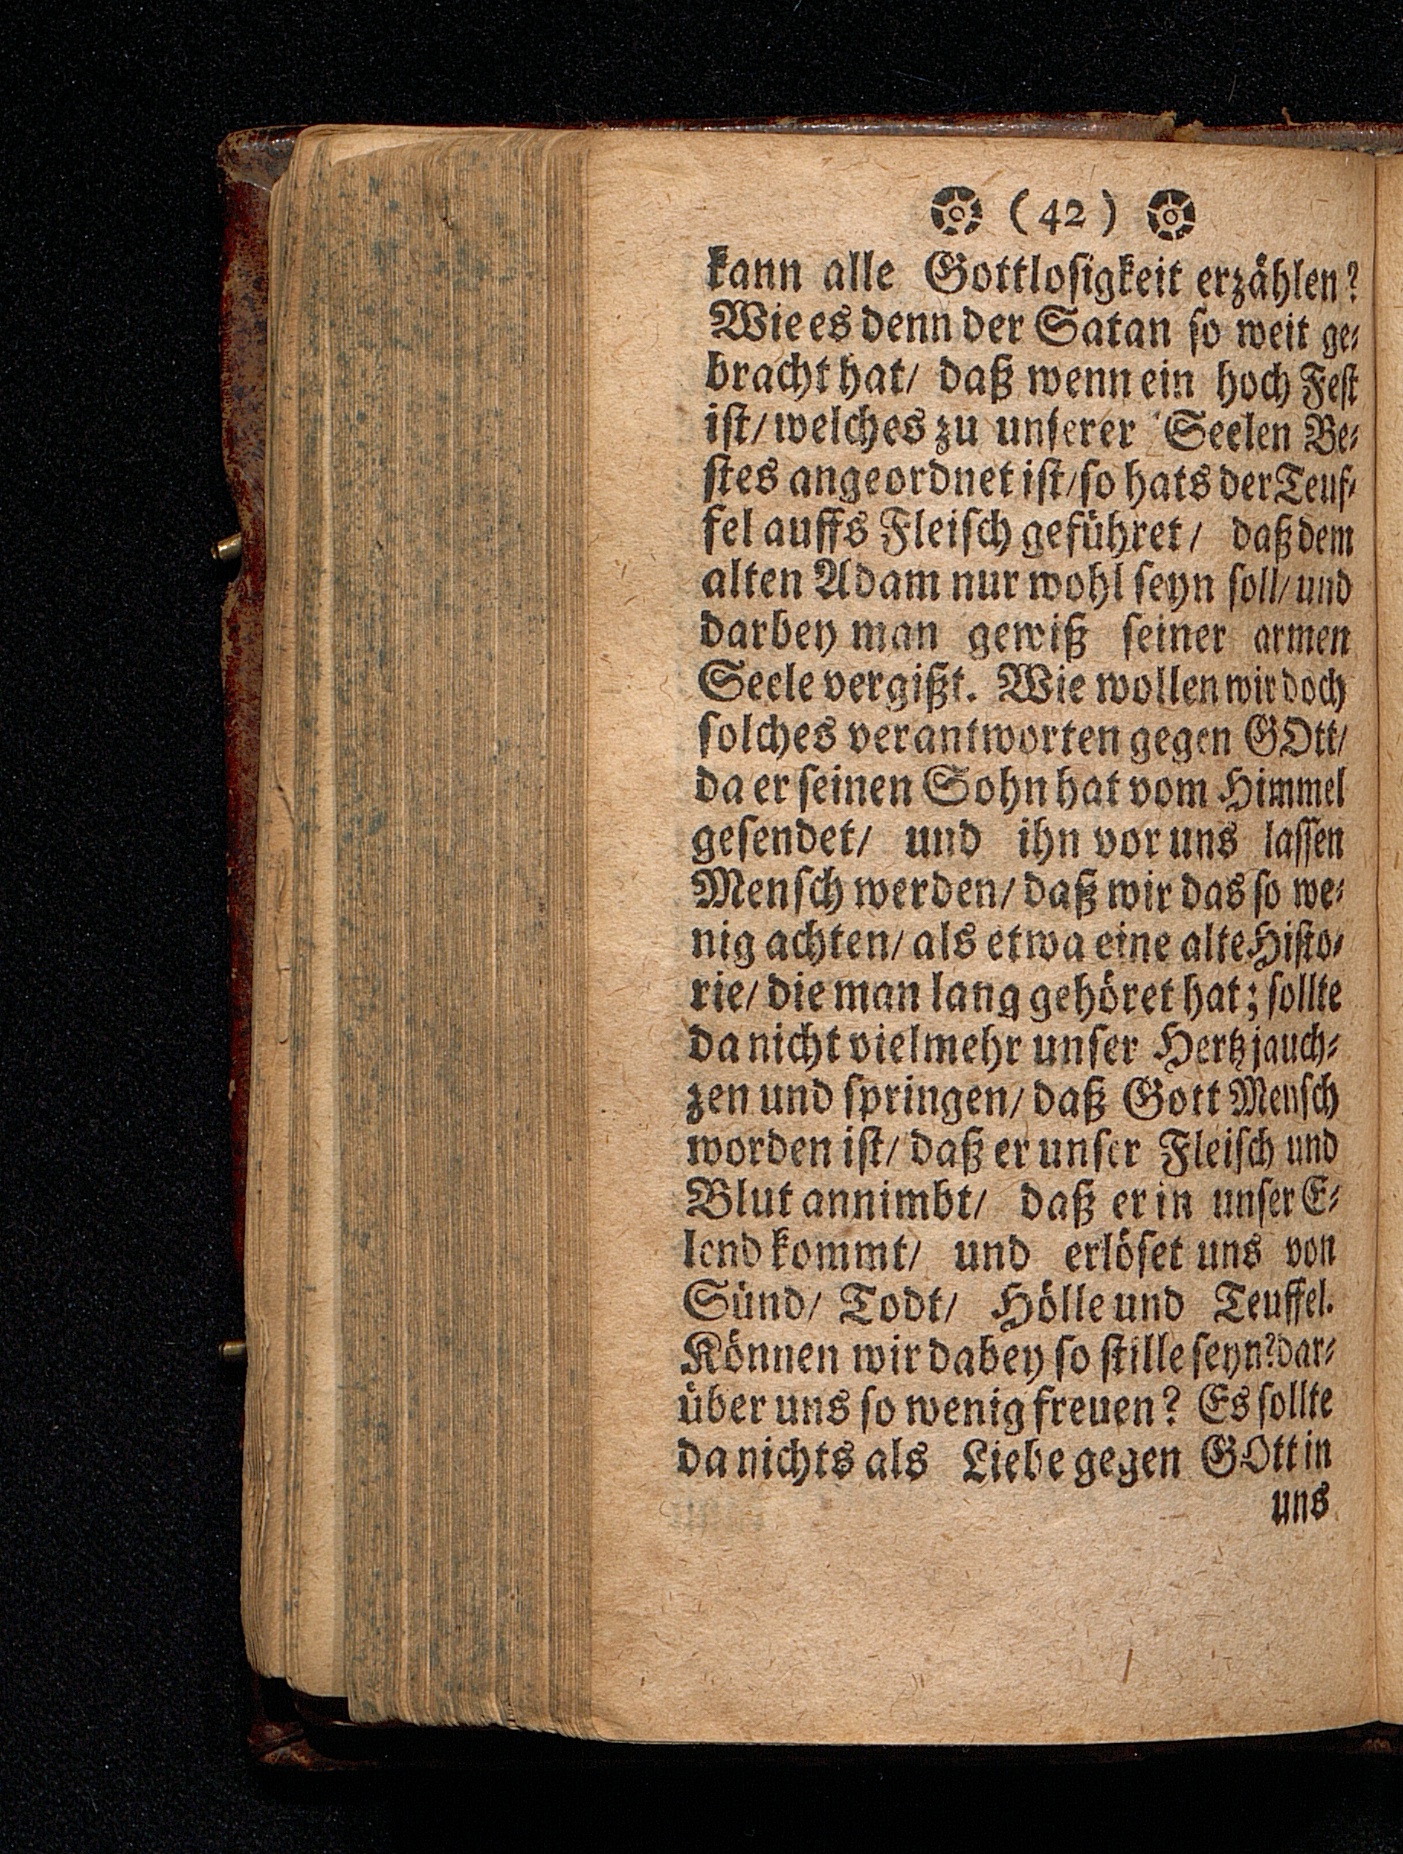 (42)
kann alle Gottloſigkeit erzählen?
Wie es denn der Satan ſo weit ge⸗
bracht hat/ daß wenn ein hoch Feſt
iſt/ welches zu unſerer Seelen Be⸗
ſtes angeordnet iſt/ ſo hats der Teuf⸗
fel auffs Fleiſch geführet/ daß dem
alten Adam nur wohl ſeyn ſoll/ und
darbey man gewiß ſeiner armen
Seele vergißt. Wie wollen wir doch
ſolches verantworten gegen GOtt/
da er ſeinen Sohn hat vom Himmel
geſendet/ und ihn vor uns laſſen
Menſch werden/ daß wir das ſo we⸗
nig achten/ als etwa eine alte Hiſto⸗
rie/ die man lang gehöret hat; ſollte
da nicht vielmehr unſer Hertz jauch⸗
zen und ſpringen/ daß Gott Menſch
worden iſt/ daß er unſer Fleiſch und
Blut annimbt/ daß er in unſer E⸗
lend kommt/ und erlöſet uns von
Sünd/ Todt/ Hölle und Teuffel.
Können wir dabey ſo ſtille ſeyn? dar⸗
über uns ſo wenig freuen? Es ſollte
da nichts als Liebe gegen GOtt in
uns